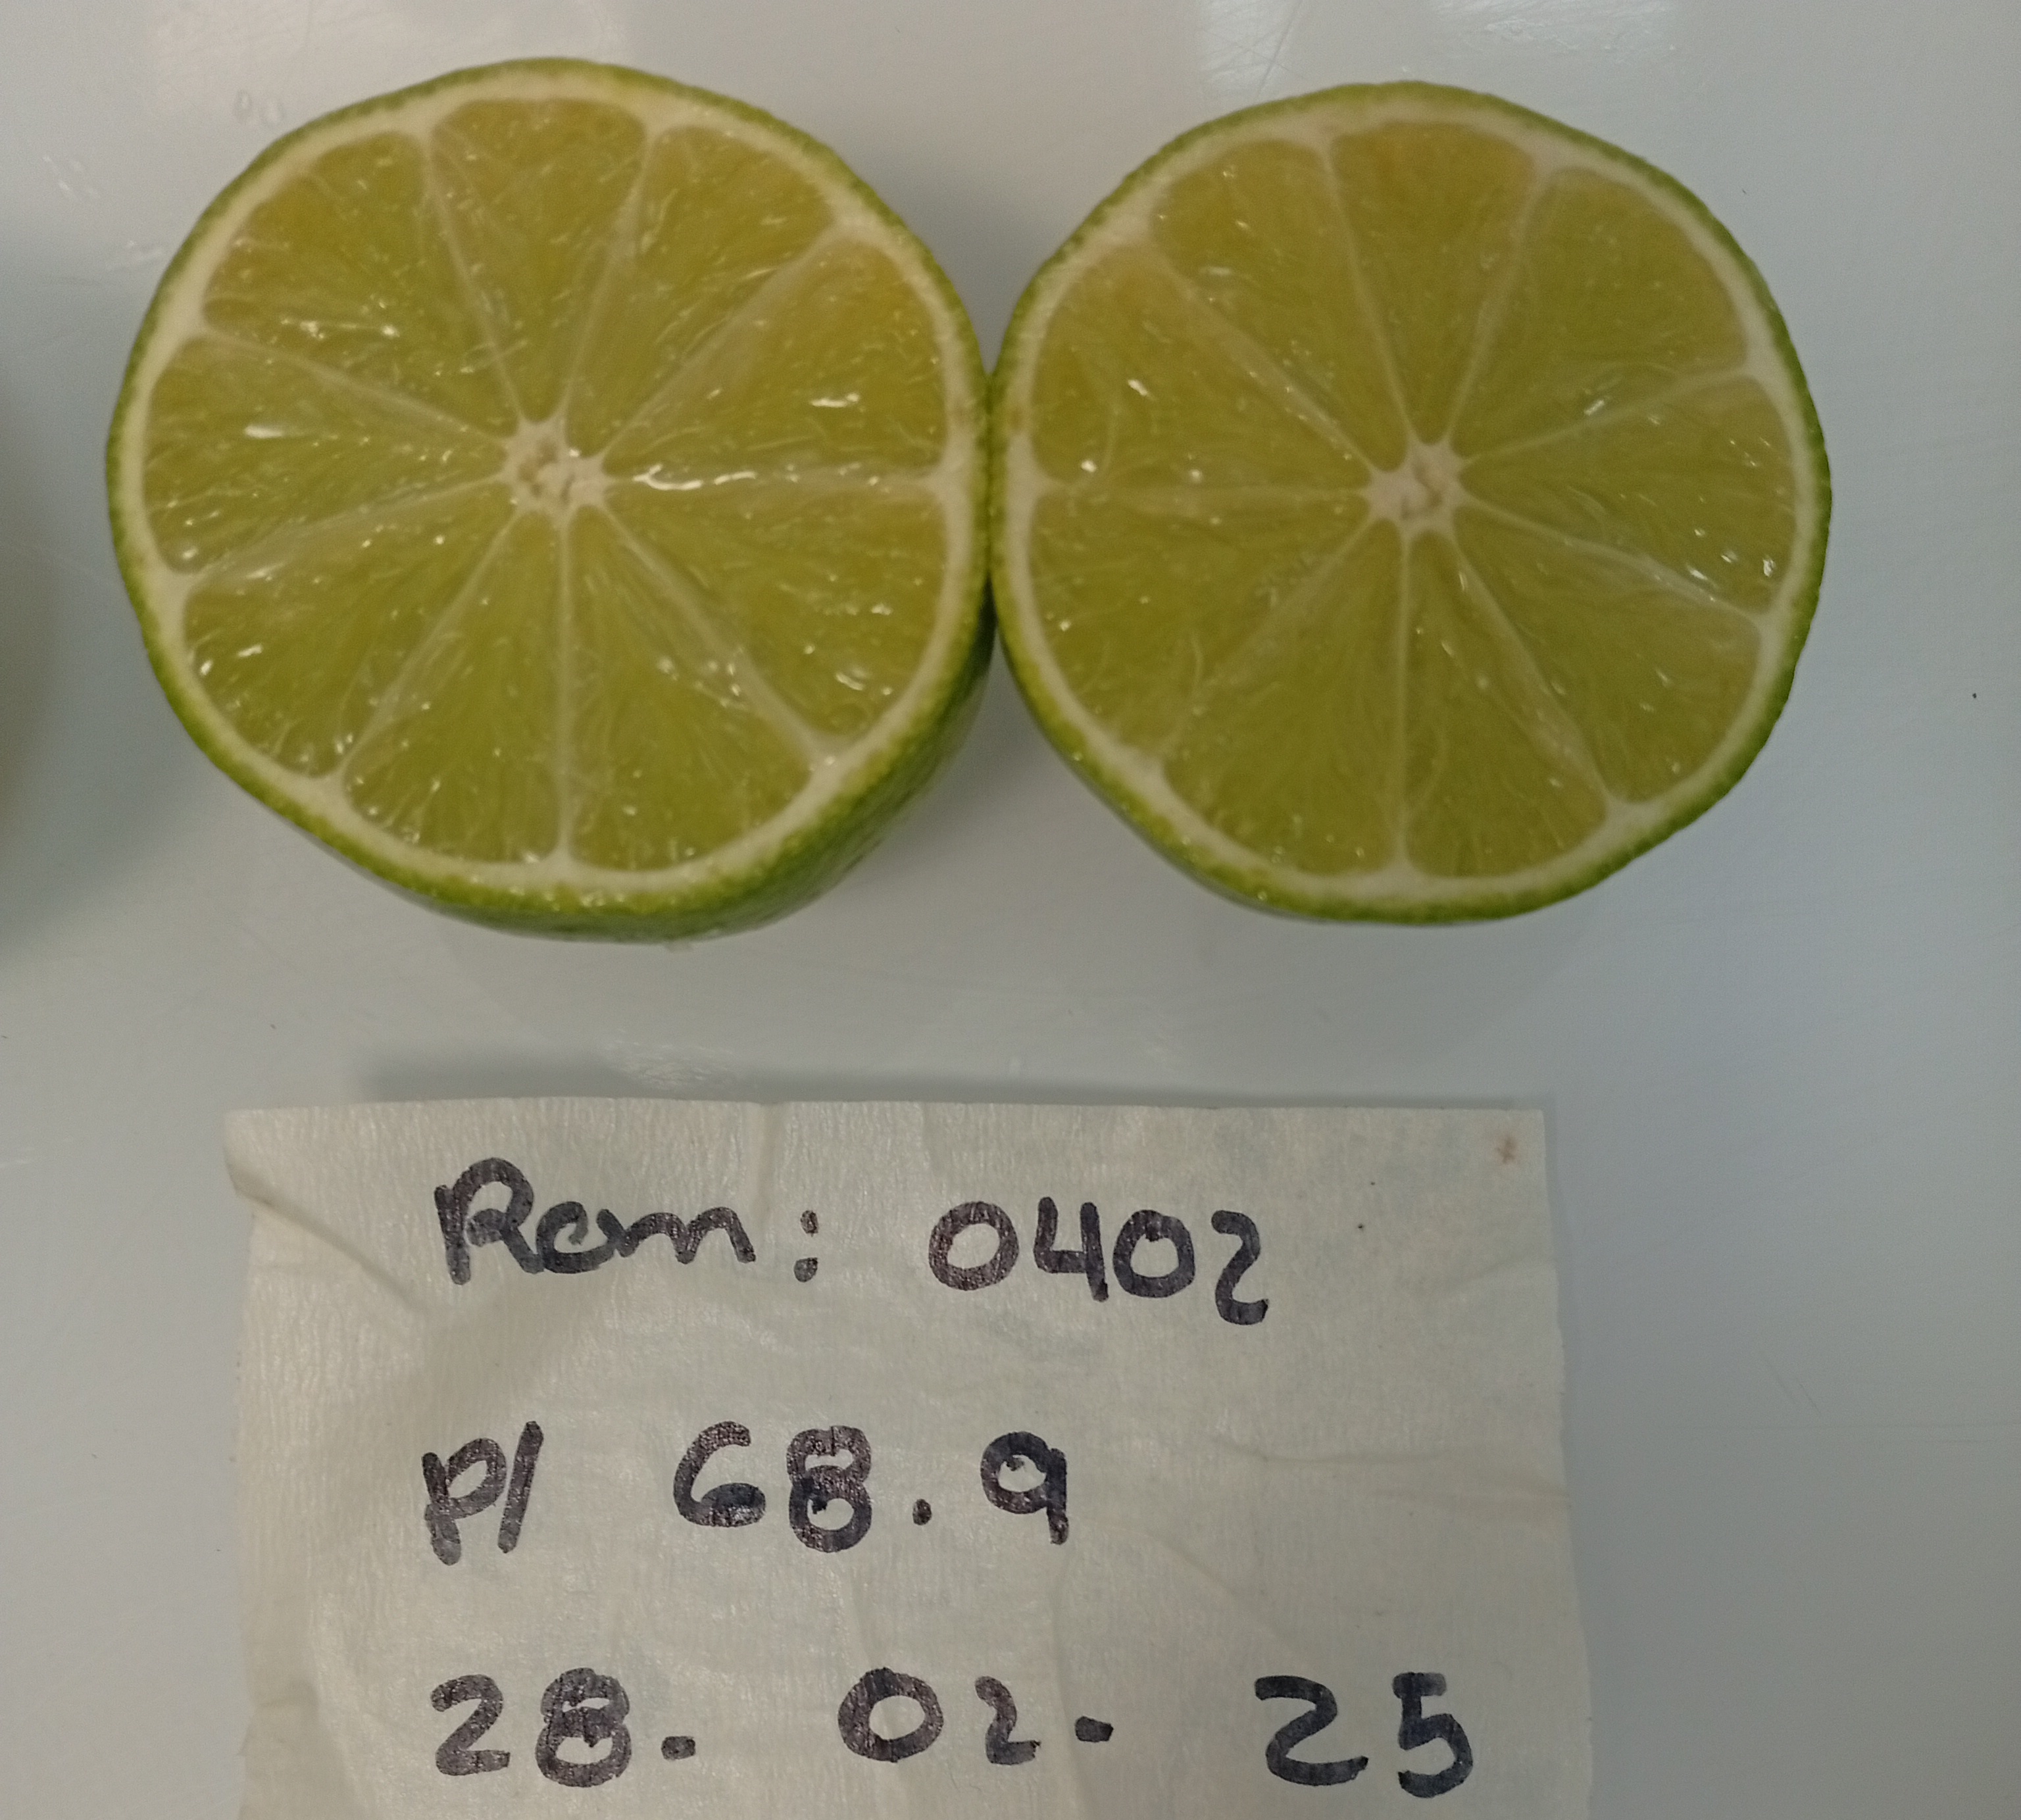 Rem: 0402
P/ 68.9
28. 02. 25